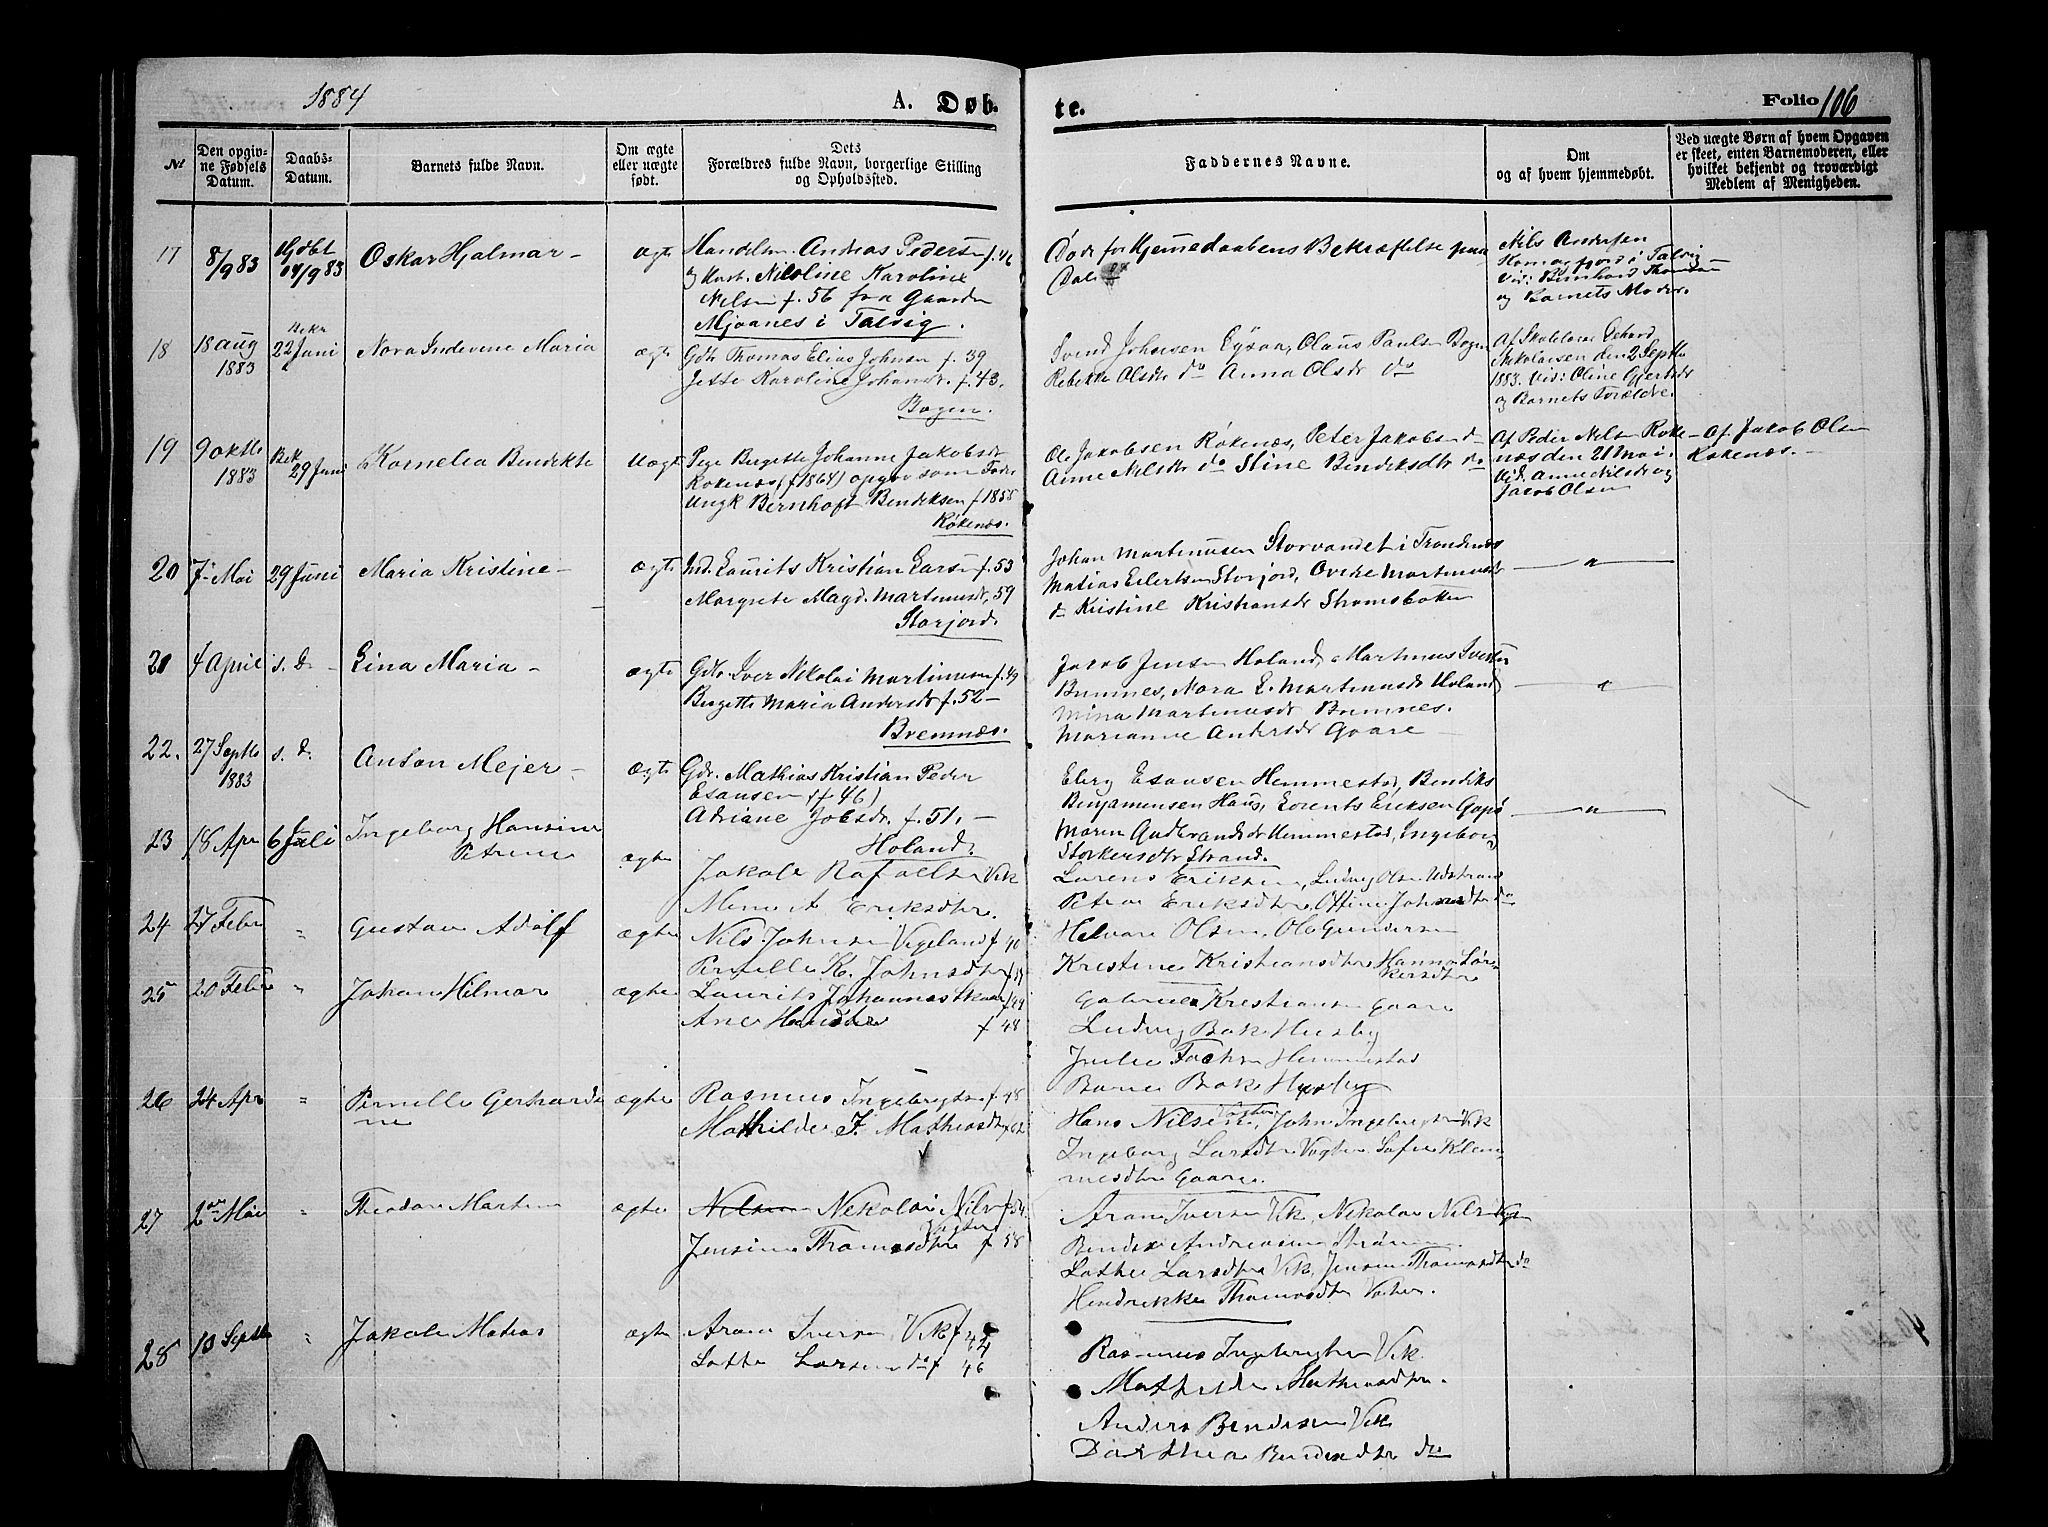 1884
A. Døb-
te.
Folio 106
№
Den opgiv-
ne Fødsels
Datum.
Daabs-
Datum.
Barnets fulde Navn.
Om ægte
eller uægte
født.
Dets
Forældres fulde Navn, borgerlige Stilling
og Opholdssted.
Faddernes Navne.
Om
og af hvem hjemmedøbt.
Ved uægte Børn af hvem Opgaven
er skeet, enten Barnemoderen, eller
hvilket bekjendt og troværdigt
Medlem af Menigheden.
17
8/9 83
Hjdbt
14/9 83
Oskar Hjalmar -
ægte
Handelsm Andreas Pedersen f. 46
og Hust. Nicoline Karoline
Nilsen f. 56 fra Gaarden
Mjoanes i Talvig.
Døde før Hjemmedaabens Bekræftelse paa
Nils Andersen
i Talvig
Vid: Bernhard Thomsen
og Barnets Moder.
18
18 aug
1883
Bekr
22 Juni
Nora Indevine Maria
ægte
Gdbr Thomas Elias Johnsen f. 39
Jette Karoline Johansdr. f. 43.
Bogen.
Svend Johnsen Eysaa, Olaus Paulsen Bogen
Rebekka Olsdtr do Anna Olsdr do
Af Skolelærer Gerhard
Nikolaisen den 2 Septbr
1883. Vid: Oline Gjertsdr
og Barnets Forældre.
19
9 oktbr
1883
Bek
29 Juni
Kornelia Bendikte
Uægte
Pige Birgitte Johanna Jakobsdr
Rokenæs (f 1864) opgav som Fader
Ungk Bernhoft Bendiksen f 1858
Røkenæs.
Ole Jakobsen Røkenæs, Peter Jakobsen do
Anne Nilsdtr do Stine Bendiksdtr do
Af Peder Nilsen Røke-
næs den 21 Mai.
Vid. Anne Nilsdr og
Jacob Olsen
Af Jakob Olsen
Røkenæs.-
20
7 Mai
29 Juni
Maria Kristine -
ægte
Ind. Laurits Kristian Larsen f. 53
Margrete Magd. Martinusdr, 59
Storjord.
Johan Martinusen Storvandet i Trondenæs
Matias Eilertsen Storjord, Martinusdr
do Kristine Kristiansdr Stromsbotten
— " —
21
4 April
s. D. -
Lina Maria -
ægte
Gdbr. Iver Nikolai Martinusen f. 49
Birgitte Maria Andersdr f. 52 -
Bremnæs.
Jacob Jensen Holand, Martinus Iversen
Bremnes, Nora E. Martinusdr Holand
Mina Martinusdr Bremnes.
Marianne Andersdr Gaare -
— " —
22.
27 Septbr
1883
s. d.
Anton Mejer -
ægte
Gdr. Mathias Kristian Peder
Esausen (f 46)
Adriane Jobsdr. f. 51. -
Holand.
Elerg Esausen Hemmestad, Bendiks
Benjaminsen Haus, Lorents Eriksen Gapø
Maren Hemmestad, Ingeborg
Storkersdtr Strand.
— " —
23
18 Apr
6 Juli
Ingeborg Hansine
Petrine
ægte
Jakob Rafaelsen Vik
A Eriksdtr.
Lorens Eriksen, Ludvig Olsen
Petrine Eriksdtr, Ottine Johnsdtr do
24
27 Febr
"
Gustav Adolf
ægte
Nils Johnsen Vigeland f 40
Pernille K. Johnsdtr
Helvare Olsen, Ole Gundersen
Kristine Kristiansdtr Hanna
25
20 Febr
"
Johan Hilmar
ægte
Laurits Johannes
Ane Hansdtr f 48
Gabriel Kristiansen Gaare
Ludvig Bak Husby
Julie Hemmestad
Bak Husby
26
24 Apr
"
Pernille Gerharde
ne
ægte
Rasmus Ingebrigtsen f. 48
Mathilde J. Mathiasdtr f 62
Hans Nilsen, John Ingebrigtsen Vik
Ingeborg Larsdtr Sofie Klem-
mesdtr Gaare.
27
2den Mai
"
Theodor Martin
ægte
Nekolai Nilsen f 54.
Jensine Thomasdtr f 58
Aron Iversen Vik, Nikolai Nilsen
Bendix Andreassen
Lotte Larsdtr Vik, Jensine Thomasdtr do
Hendrikke Thomasdtr
28
10 Septbr
"
Jakob Matias
ægte
Aron Iversen Vik f 44
Lotte Larsen do f 46
Rasmus Ingebrigtsen Vik
Mathilde Mathiasdtr.
Anders Bendixsen Vik
Dorthea Bendixdtr do